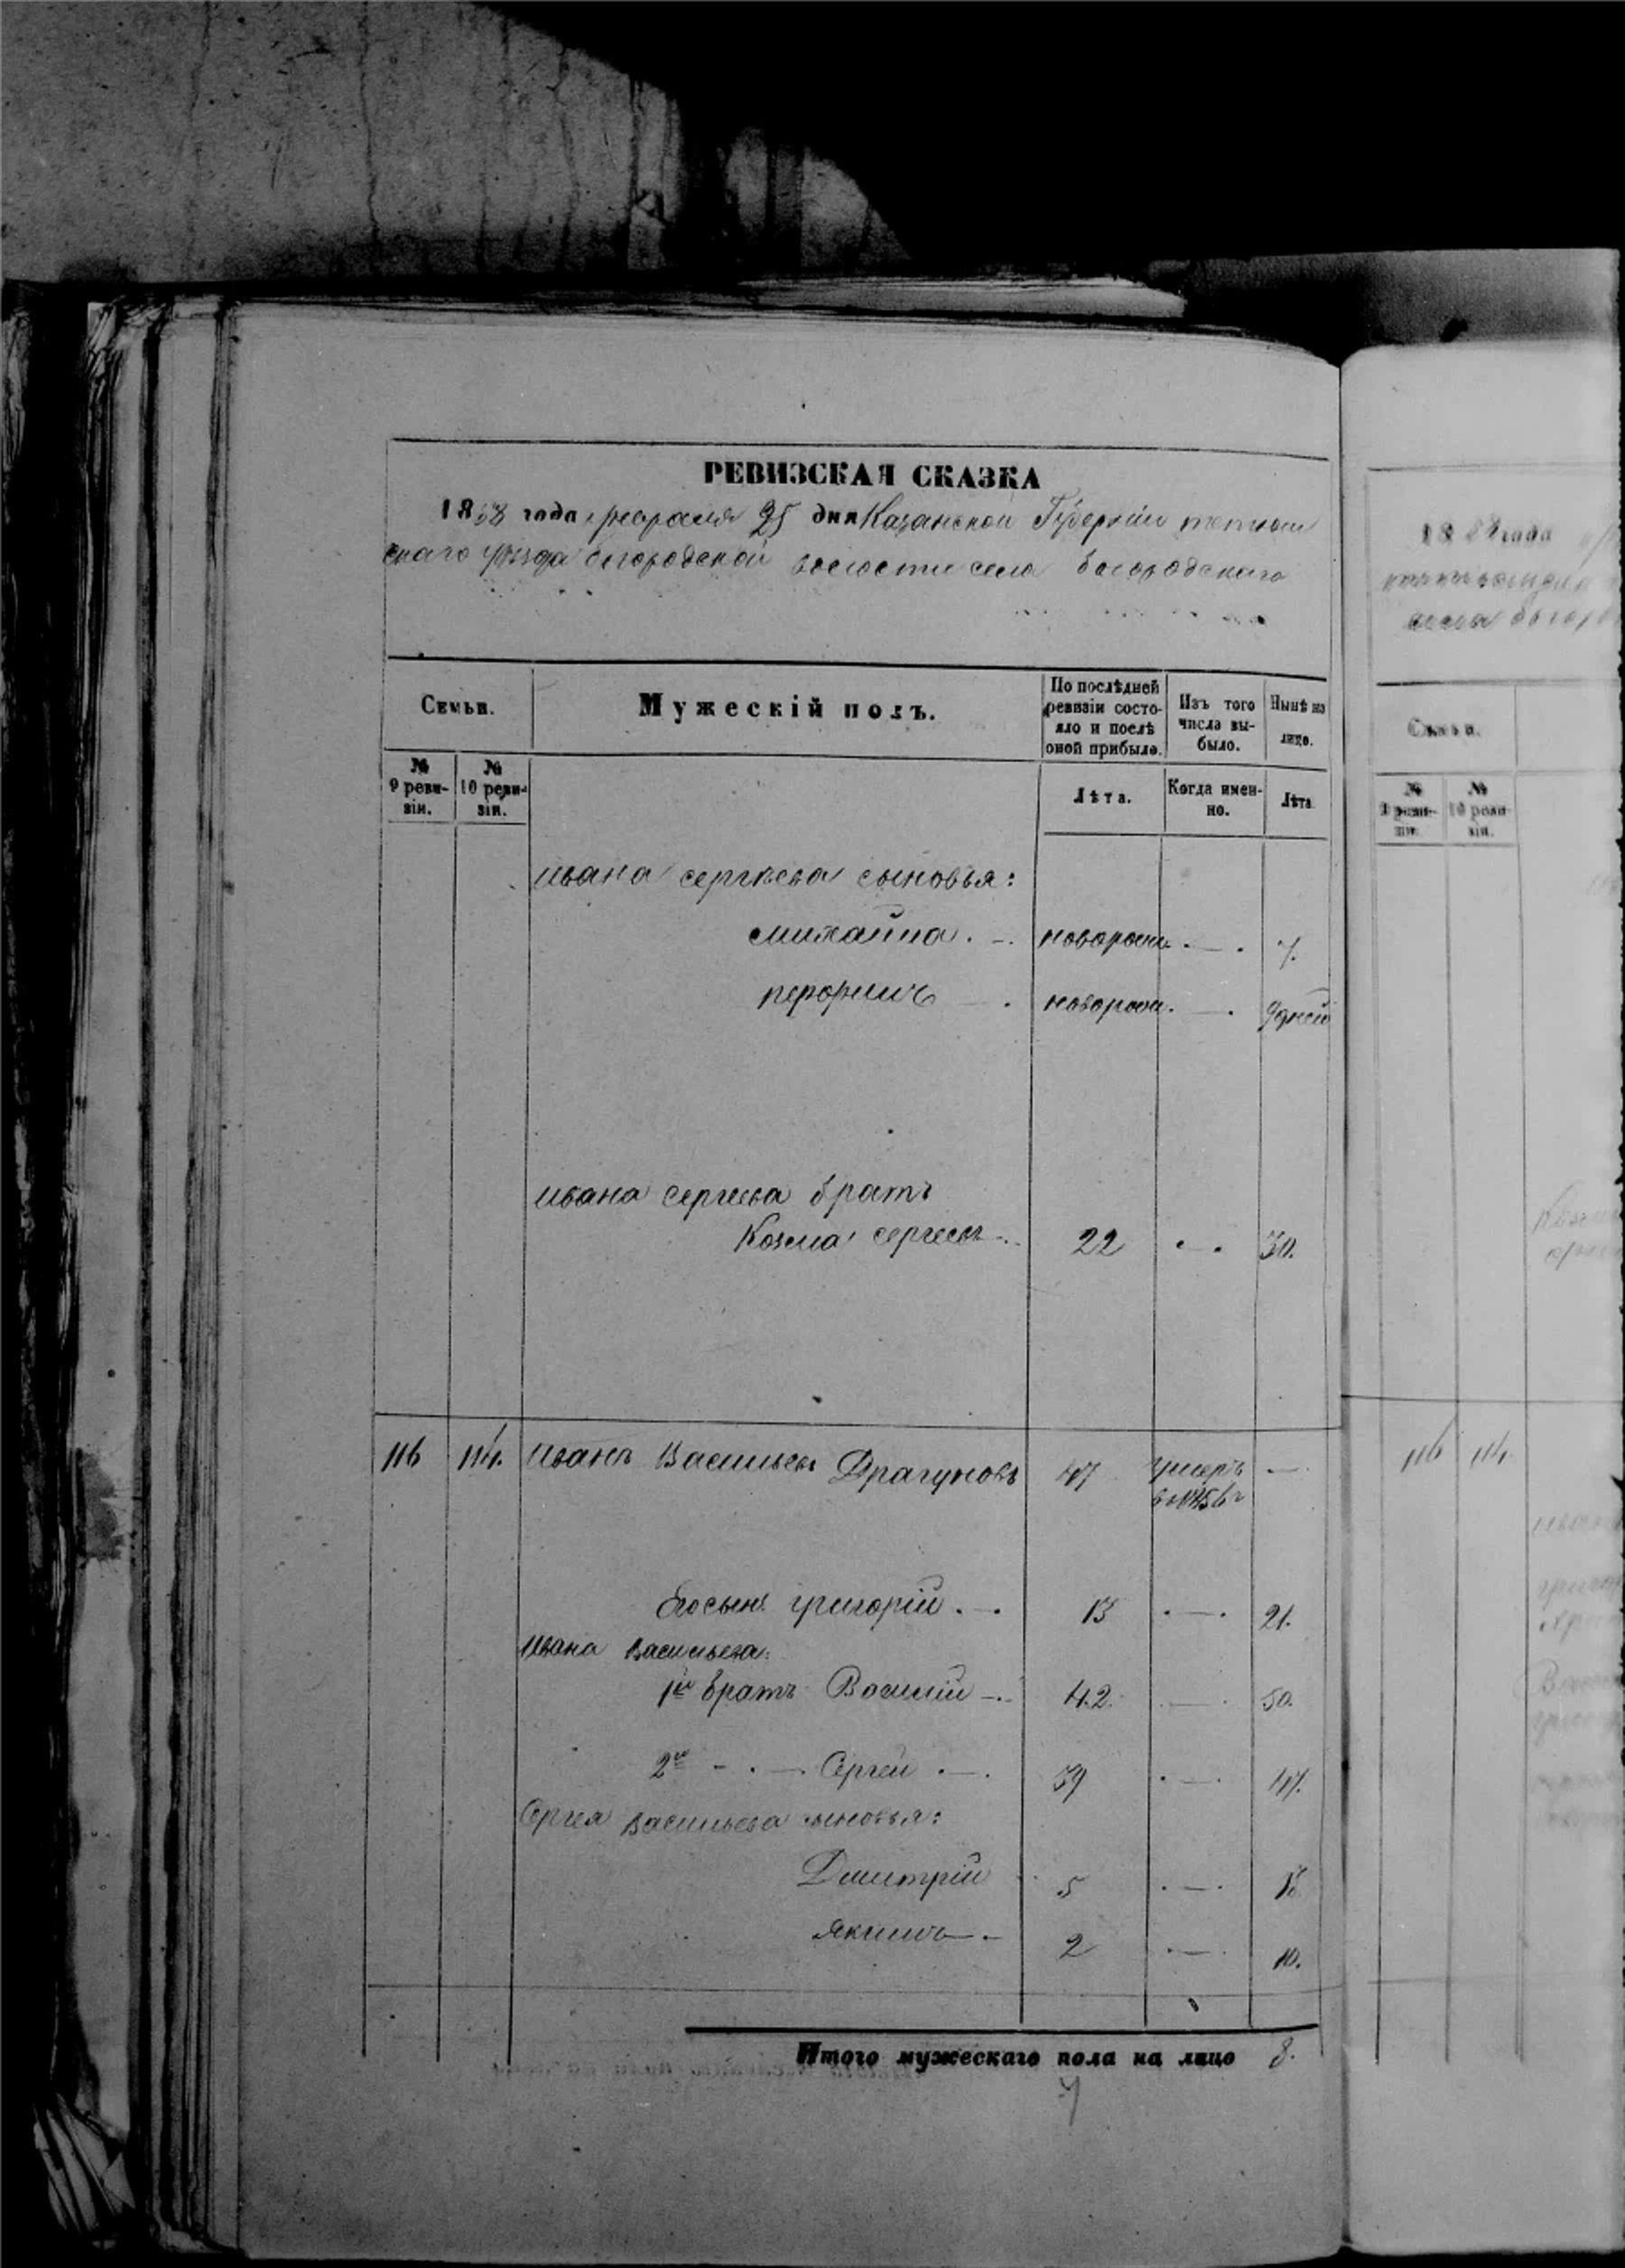 РЕВИЗСКАЯ СКАЗКА
1858 года февраля 25 дня Казанской Губернiи тетюш
скаго уѣзда богородской волости села богородскаго
Семьи.
Мужескiй полъ.
По послѣдней
ревизiи состо-
яло и послѣ
оной прибыло.
Изъ того
числа вы-
было.
Нынѣ на
лицо.
№
9 реви-
зiи.
№
10 реви-
зiи.
Лѣта.
Когда имен-
но.
Лѣта
ивана сергѣева сыновья:
михаила . - . новорожд. . — . 7.
новорожд. . — . 9 дней
ивана сергеева братъ
Козма сергеевъ - . . 22 . - . 30.
116 114. иванъ Васильевъ Драгуновъ 47 умеръ —
в 1856 г
Его сынъ григорiй . - . 13 . — . 21.
ивана васильева:
1й братъ Василiй - . . 42. . — . 50.
2й - . — Сергей . — . 39 . — . 47.
Сергея васильева сыновья:
Дмитрiй 5 . — . 13
якимъ — . 2 . — . 10.
Итого мужескаго пола на лицо 8.
18 58 года
села богоро
Семьи.
№
9 реви-
зiи.
№
10 реви-
зiи.
116 114.